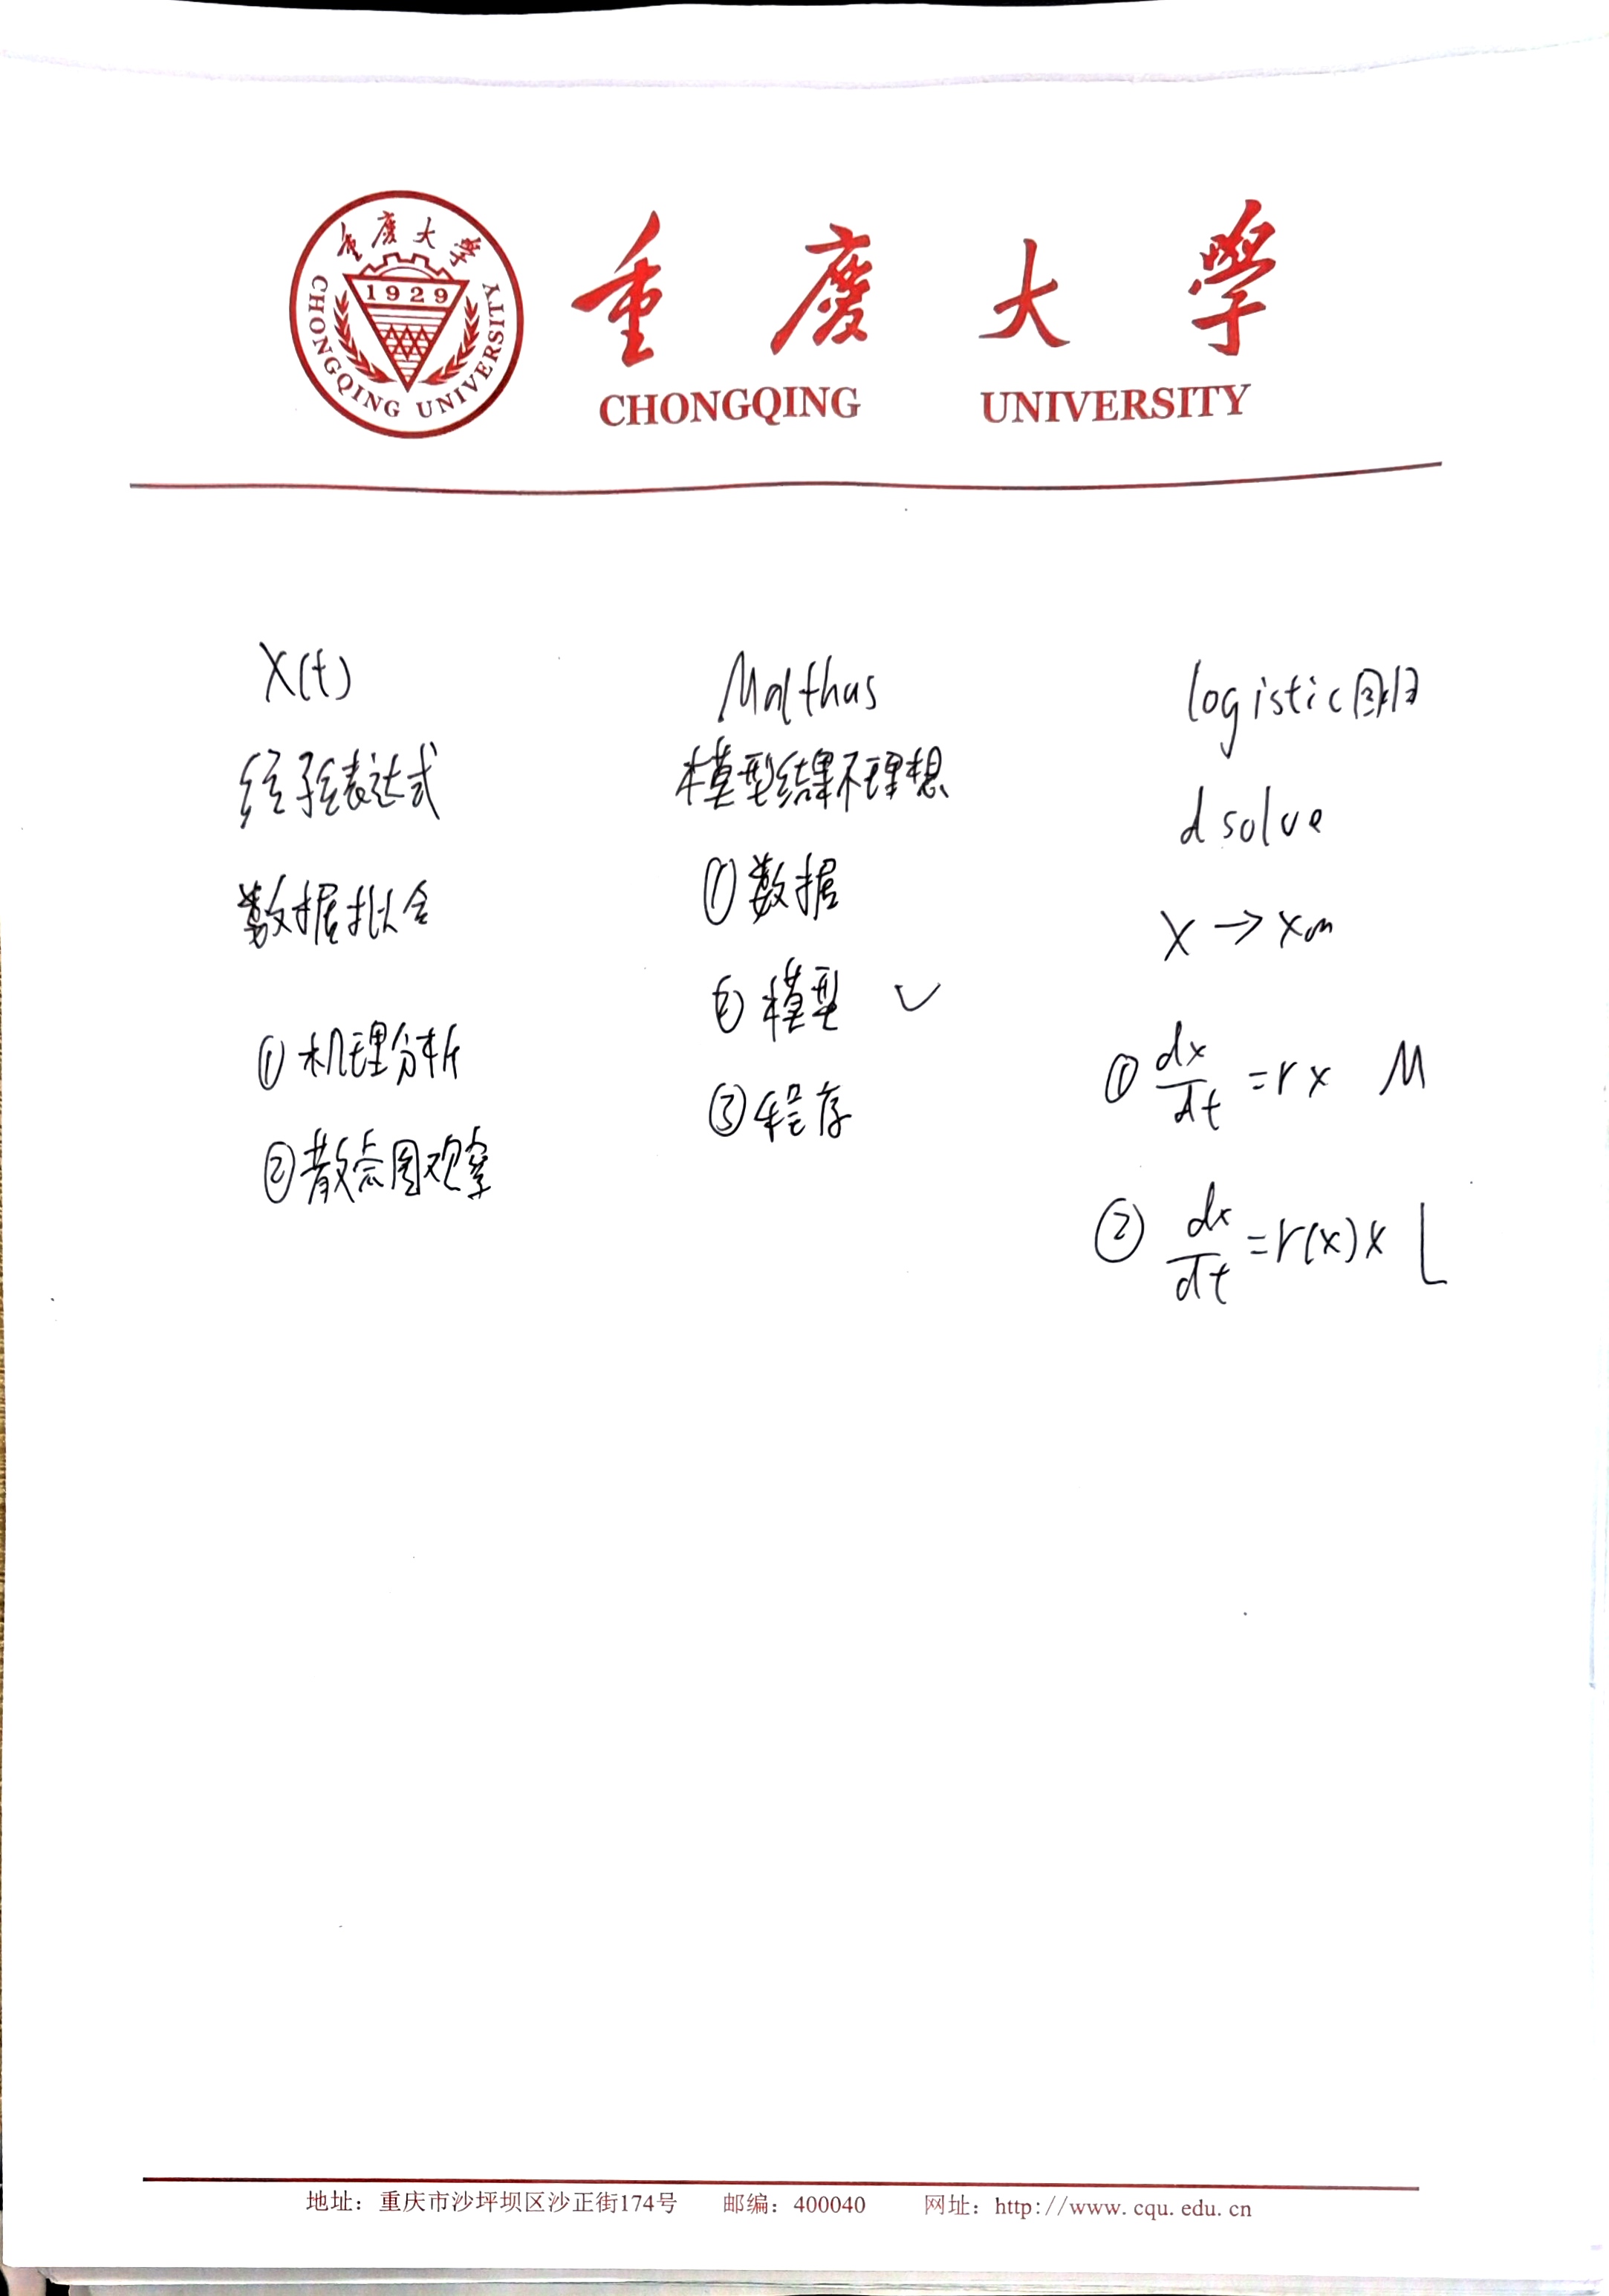 重庆大學
CHONGQING UNIVERSITY
1929
重慶大學
CHONGQING UNIVERSITY
X(t)
表达式
数据拟合
①机理分析
②散点图观察
Malthus
模型结果不理想
①数据
②模型 ✓
③程序
logistic回归
dsolve
x → xm
① dx/dt = rx M
② dx/dt = r(x)x L
地址：重庆市沙坪坝区沙正街174号 邮编：400040 网址：http://www.cqu.edu.cn